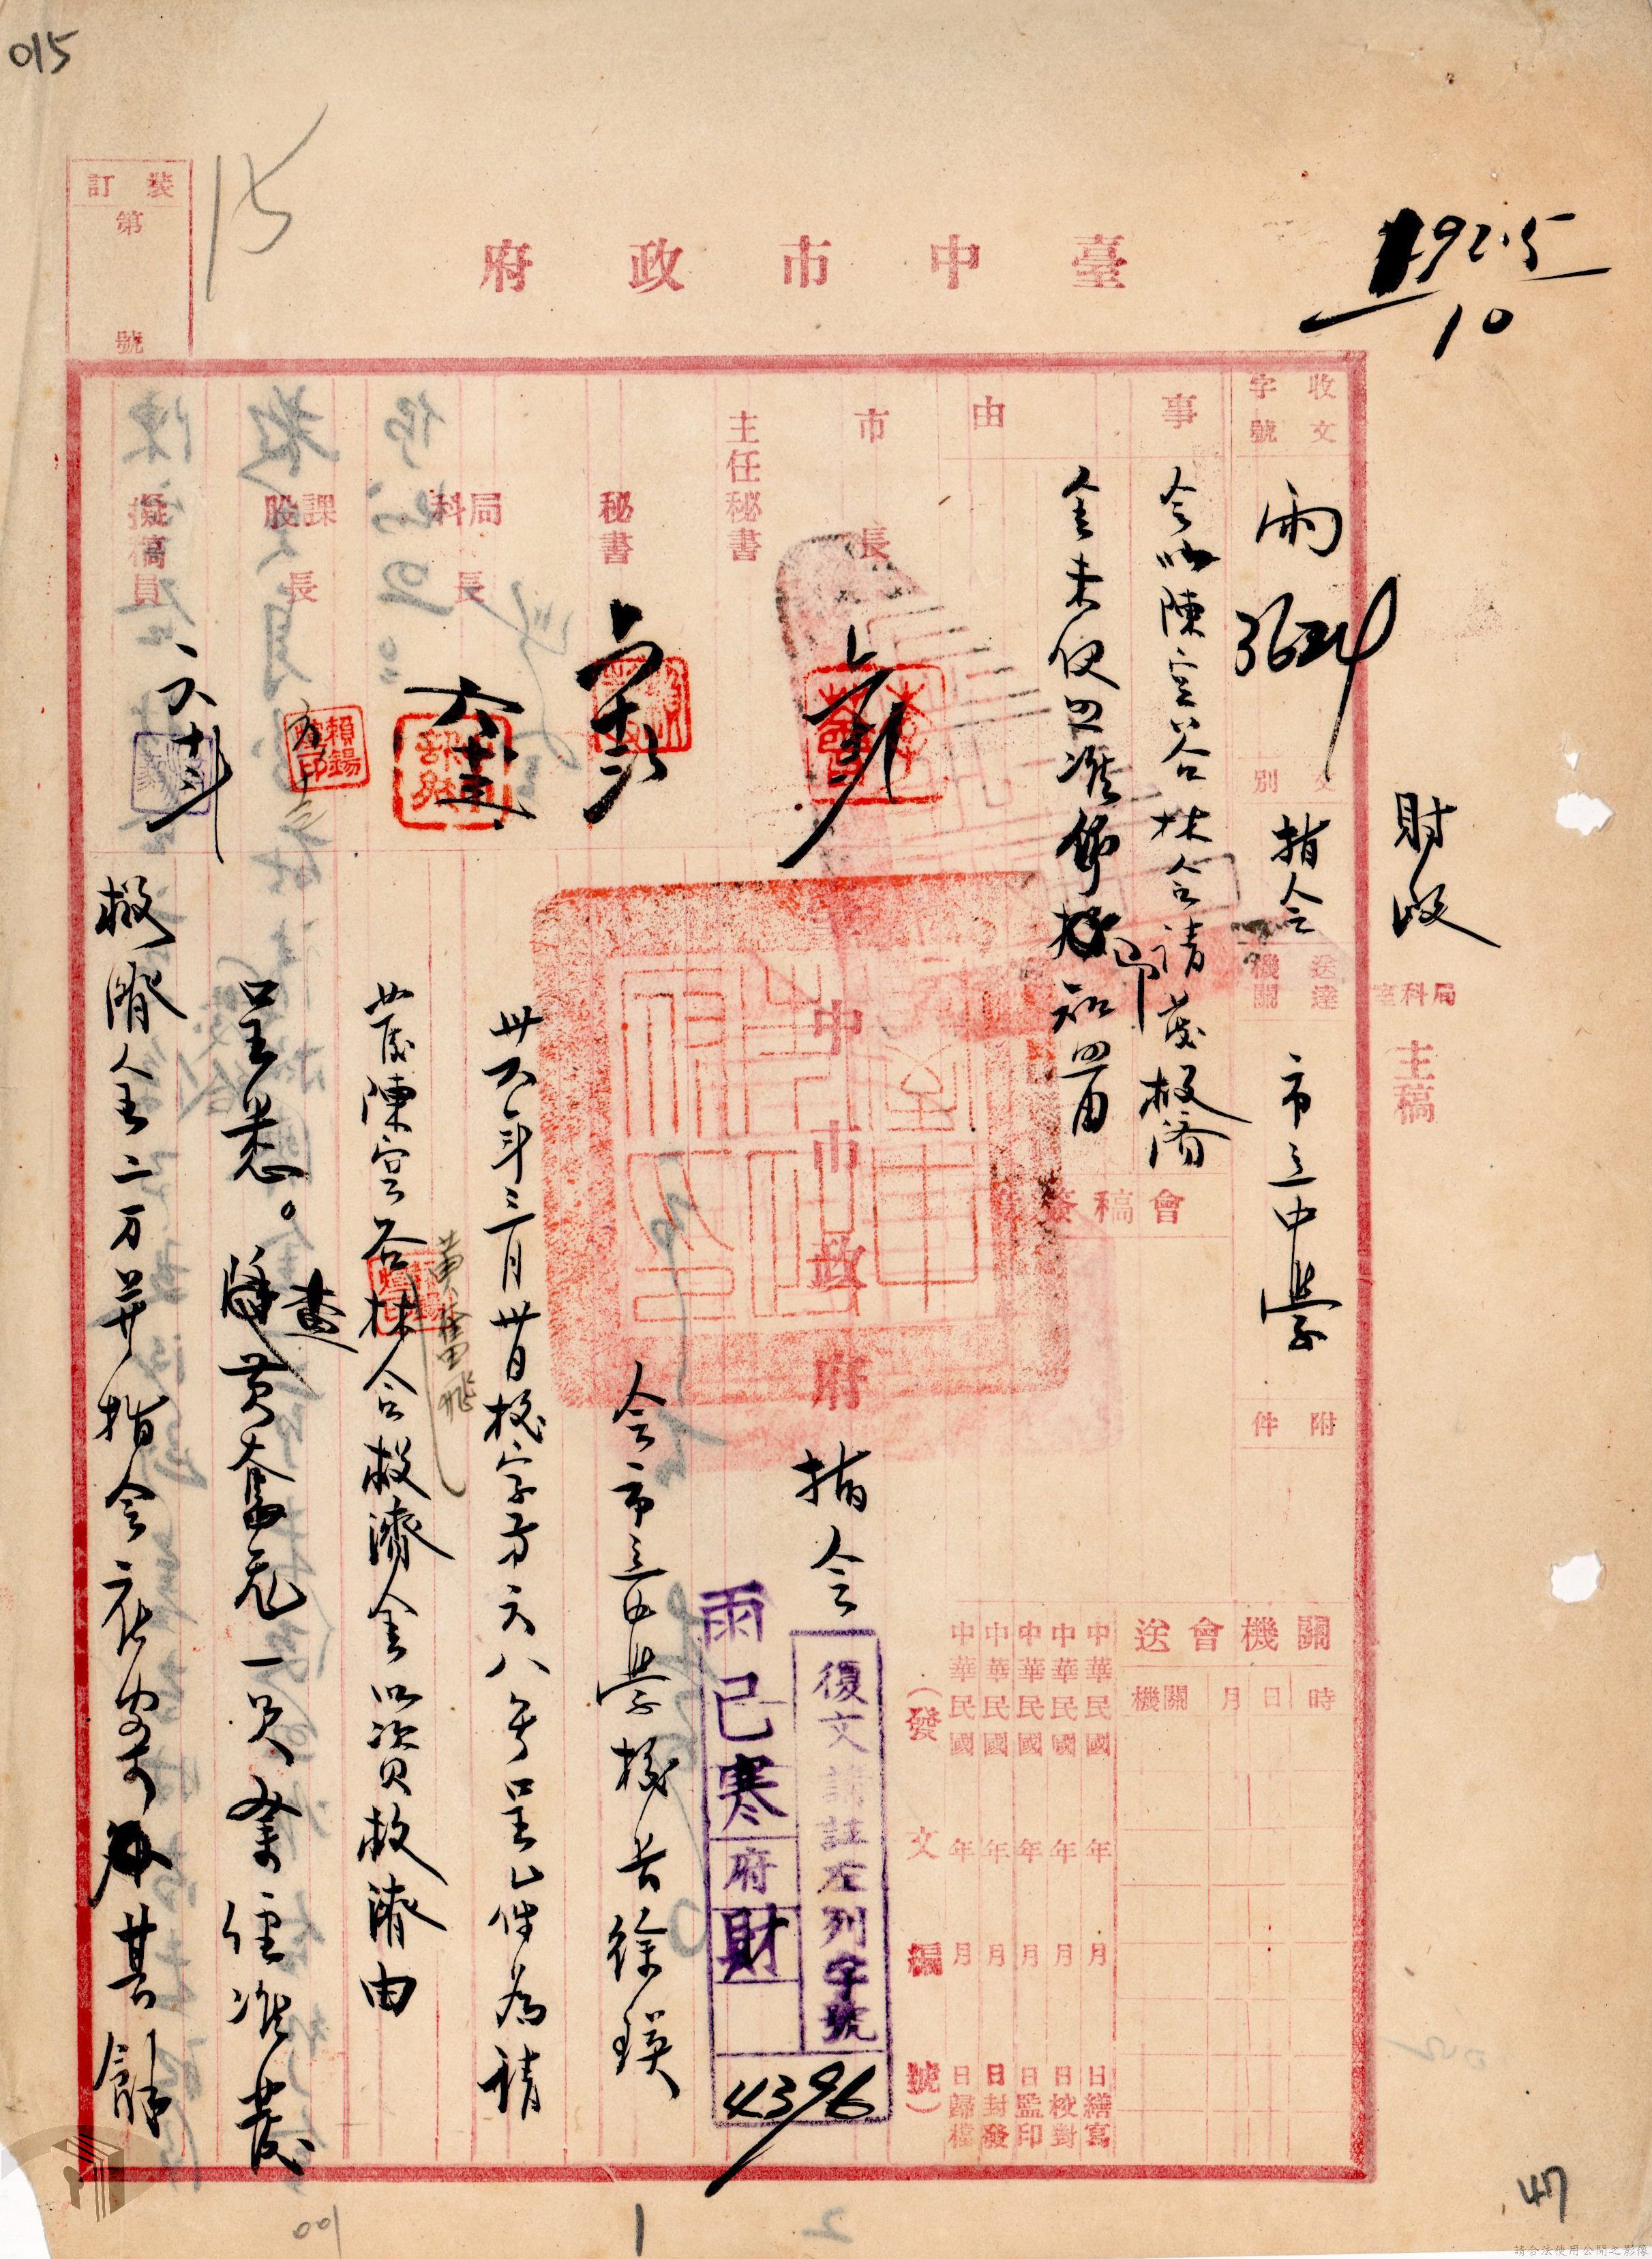 015
15
192.5
10
裝訂
第
號
臺中市政府
財政
局科室
主稿
收文
字號
雨
3624
文別
指令
送達機關
市立中學
附件
事由
令以陳宗谷林合請發救濟
金未便照准仰即知照由
會稿簽
市長
主任秘書
秘書
局科長
課股長
擬稿員
六、十三
賴錫
印
臺中市政府
指令
令市立中學校長徐瑛
卅六年三月卅日校字第六八號呈乙件為請
發陳宗谷林合救濟金以資救濟由
黃奮飛
呈悉。查黃奮飛一員業經准發
救濟金二万并指令在案其餘
關機會送
機關
月
日
時
中華民國 年 月 日繕寫
中華民國 年 月 日校對
中華民國 年 月 日監印
中華民國 年 月 日封發
中華民國 年 月 日歸檔
(發文編號)
復文請註左列字號
雨巳寒府財
4396
47
1
2
請合法使用公開之影像